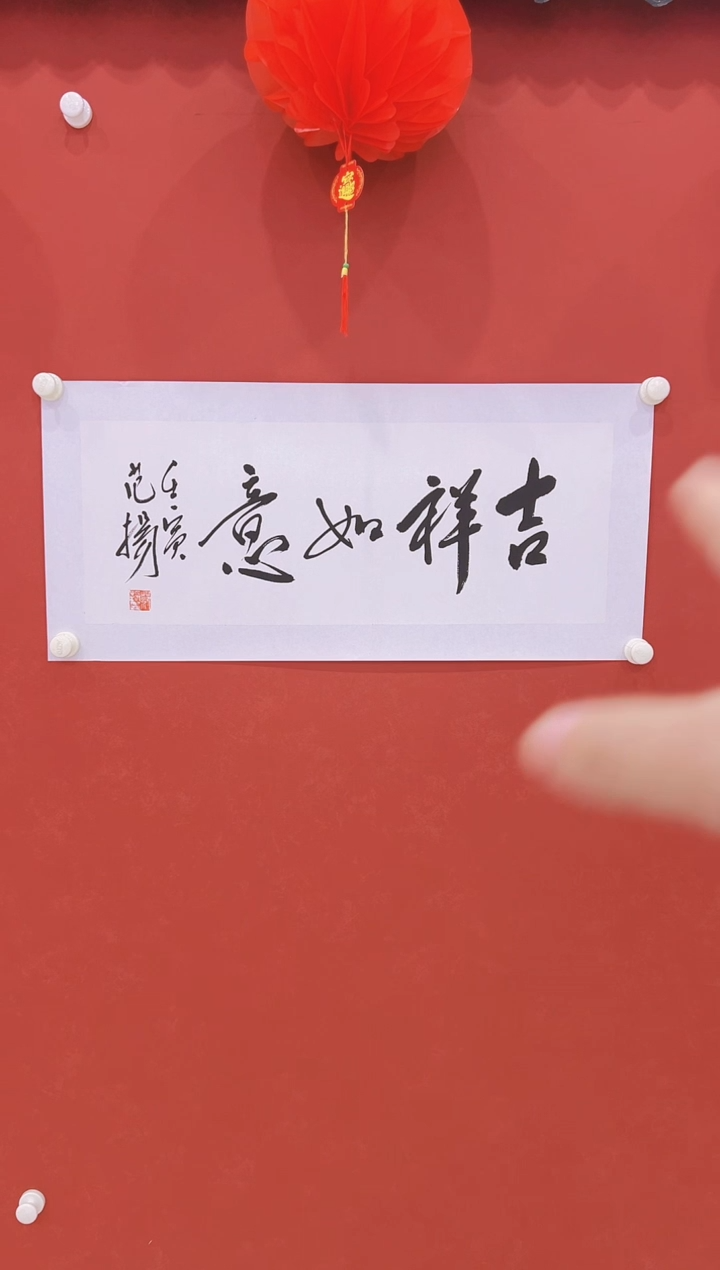 吉祥如意
壬寅
范揚